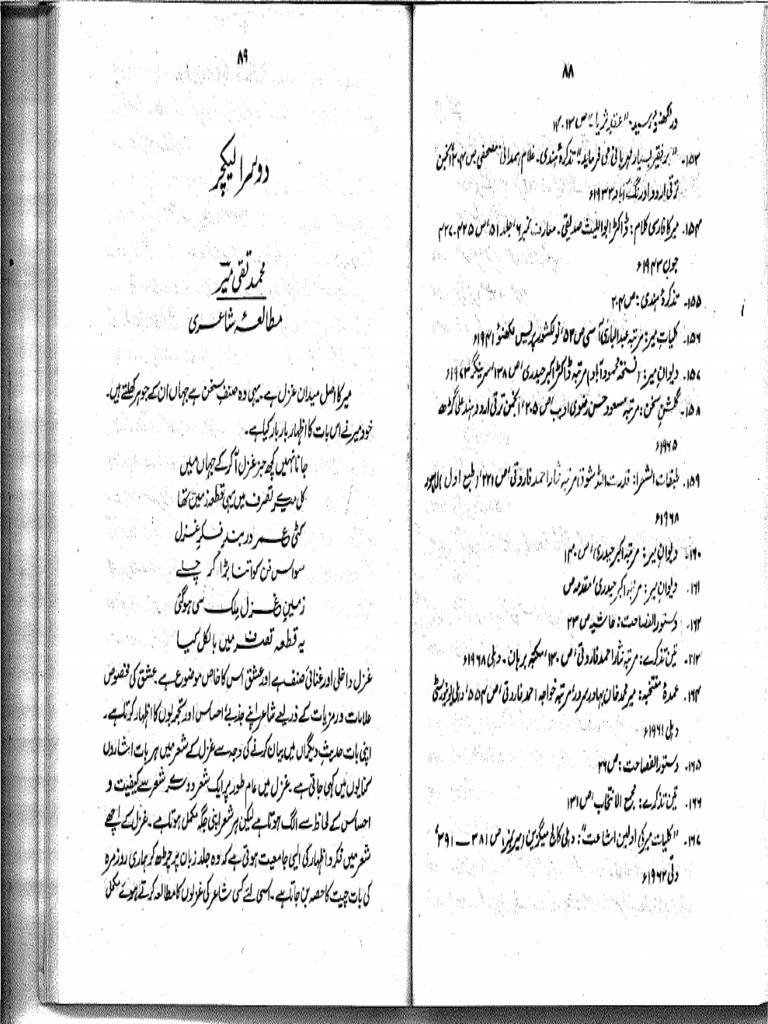 ۸۸
در لکھنؤ رسید۔" عقدِ ثریا۔" ص ۱۲۔۴۰
۱۵۳۔ "بر فقیر بسیار مہربانی می فرماید"؛ تذکرۂ ہندی۔ غلام ہمدانی مصحفی ص ۲۰۴، انجمن
ترقی اردو اورنگ آباد ۱۹۳۳ء
۱۵۴۔ میر کا فارسی کلام: ڈاکٹر ابواللیث صدیقی۔ معارف نمبر ۶، جلد ۵۱، ص ۴۲۵۔۴۲۷
جون ۱۹۴۳ء
۱۵۵۔ تذکرۂ ہندی: ص ۲۰۴
۱۵۶۔ کلیاتِ میر: مرتبہ عبدالباری آسی ص ۵۳، نولکشور پریس لکھنؤ ۱۹۴۱ء
۱۵۷۔ دیوانِ میر: (نسخۂ محمود آباد) مرتبہ ڈاکٹر اکبر حیدری، ص ۱۳۸، سرینگر ۱۹۷۳ء
۱۵۸۔ گلشنِ سخن: مرتبہ مسعود حسن رضوی ادیب، ص ۲۰۵، انجمن ترقی اردو ہند علی گڑھ
۱۹۶۵ء
۱۵۹۔ طبقات الشعرا: قدرت اللہ شوق، مرتبہ نثار احمد فاروقی، ص ۲۲۱، (طبع اول) لاہور
۱۹۶۸ء
۱۶۰۔ دیوانِ میر: مرتبہ اکبر حیدری، ص ۱۴۰
۱۶۱۔ دیوانِ میر: مرتبہ اکبر حیدری، مقدمہ ص
۱۶۲۔ دستور الفصاحت: حاشیہ ص ۲۳
۲۱۳۔ تین تذکرے: مرتبہ نثار احمد فاروقی، ص ۱۳۰، مکتبہ برہان۔ دہلی ۱۹۶۸ء
۱۶۴۔ عمدۂ منتخبہ: میر محمد خان بہادر سرور، مرتبہ خواجہ احمد فاروقی، ص ۵۵۴، دہلی یونیورسٹی
دہلی ۱۹۶۱ء
۱۶۵۔ دستور الفصاحت: ص ۲۶
۱۶۶۔ تین تذکرے: مجمع الانتخاب، ص ۱۳۱
۱۶۷۔ "کلیاتِ میر کی اولین اشاعت": دہلی کالج میگزین (میر نمبر) ص ۳۸۱ـ۳۹۱،
دلّی ۱۹۶۲ء
۸۹
دوسرا لیکچر
محمد تقی میر
مطالعۂ شاعری
میر کا اصل میدان غزل ہے۔ یہی وہ صنفِ سخن ہے جہاں ان کے جوہر کھلتے ہیں۔
خود میر نے اس بات کا اظہار بار بار کیا ہے۔
جانا نہیں کچھ جز غزل آکر کے جہاں میں
کل میرے تصرف میں یہی قطعہ زمیں تھا
کٹی عمر در بندِ فکرِ غزل
سو اس فن کو اتنا بڑا کر چلے
زمینِ غزل مِلک سی ہو گئی
یہ قطعہ تصرف میں بالکل کیا
غزل داخلی اور غنائی صنف ہے اور عشق اس کا خاص موضوع ہے۔ عشق کی مخصوص
علامات و رمزیات کے ذریعے شاعر اپنے جذبے، احساس اور تجربوں کا اظہار کرتا ہے۔
اپنی بات حدیثِ دیگراں میں بیان کرنے کی وجہ سے غزل کے شعر میں ہر بات اشاروں
کنایوں میں کہی جاتی ہے۔ غزل میں عام طور پر ایک شعر دوسرے شعر سے کیفیت و
احساس کے لحاظ سے الگ ہوتا ہے لیکن ہر شعر اپنی جگہ مکمل ہوتا ہے۔ غزل کے اچھے
شعر میں فکر و اظہار کی ایسی جامعیت ہوتی ہے کہ وہ جلد زبان پر چڑھ کر ہماری روزمرہ
کی بات چیت کا حصہ بن جاتا ہے۔ اسی لئے کسی شاعر کی غزلوں کا مطالعہ کرتے ہوئے مکمل